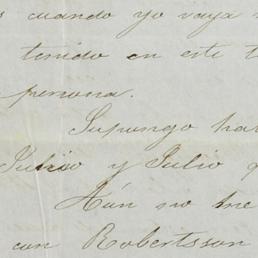 cuando yo vaya
tenido en este t
persona.
Supongo ha
Julio y Julio q
Aún no me
con Robertsson